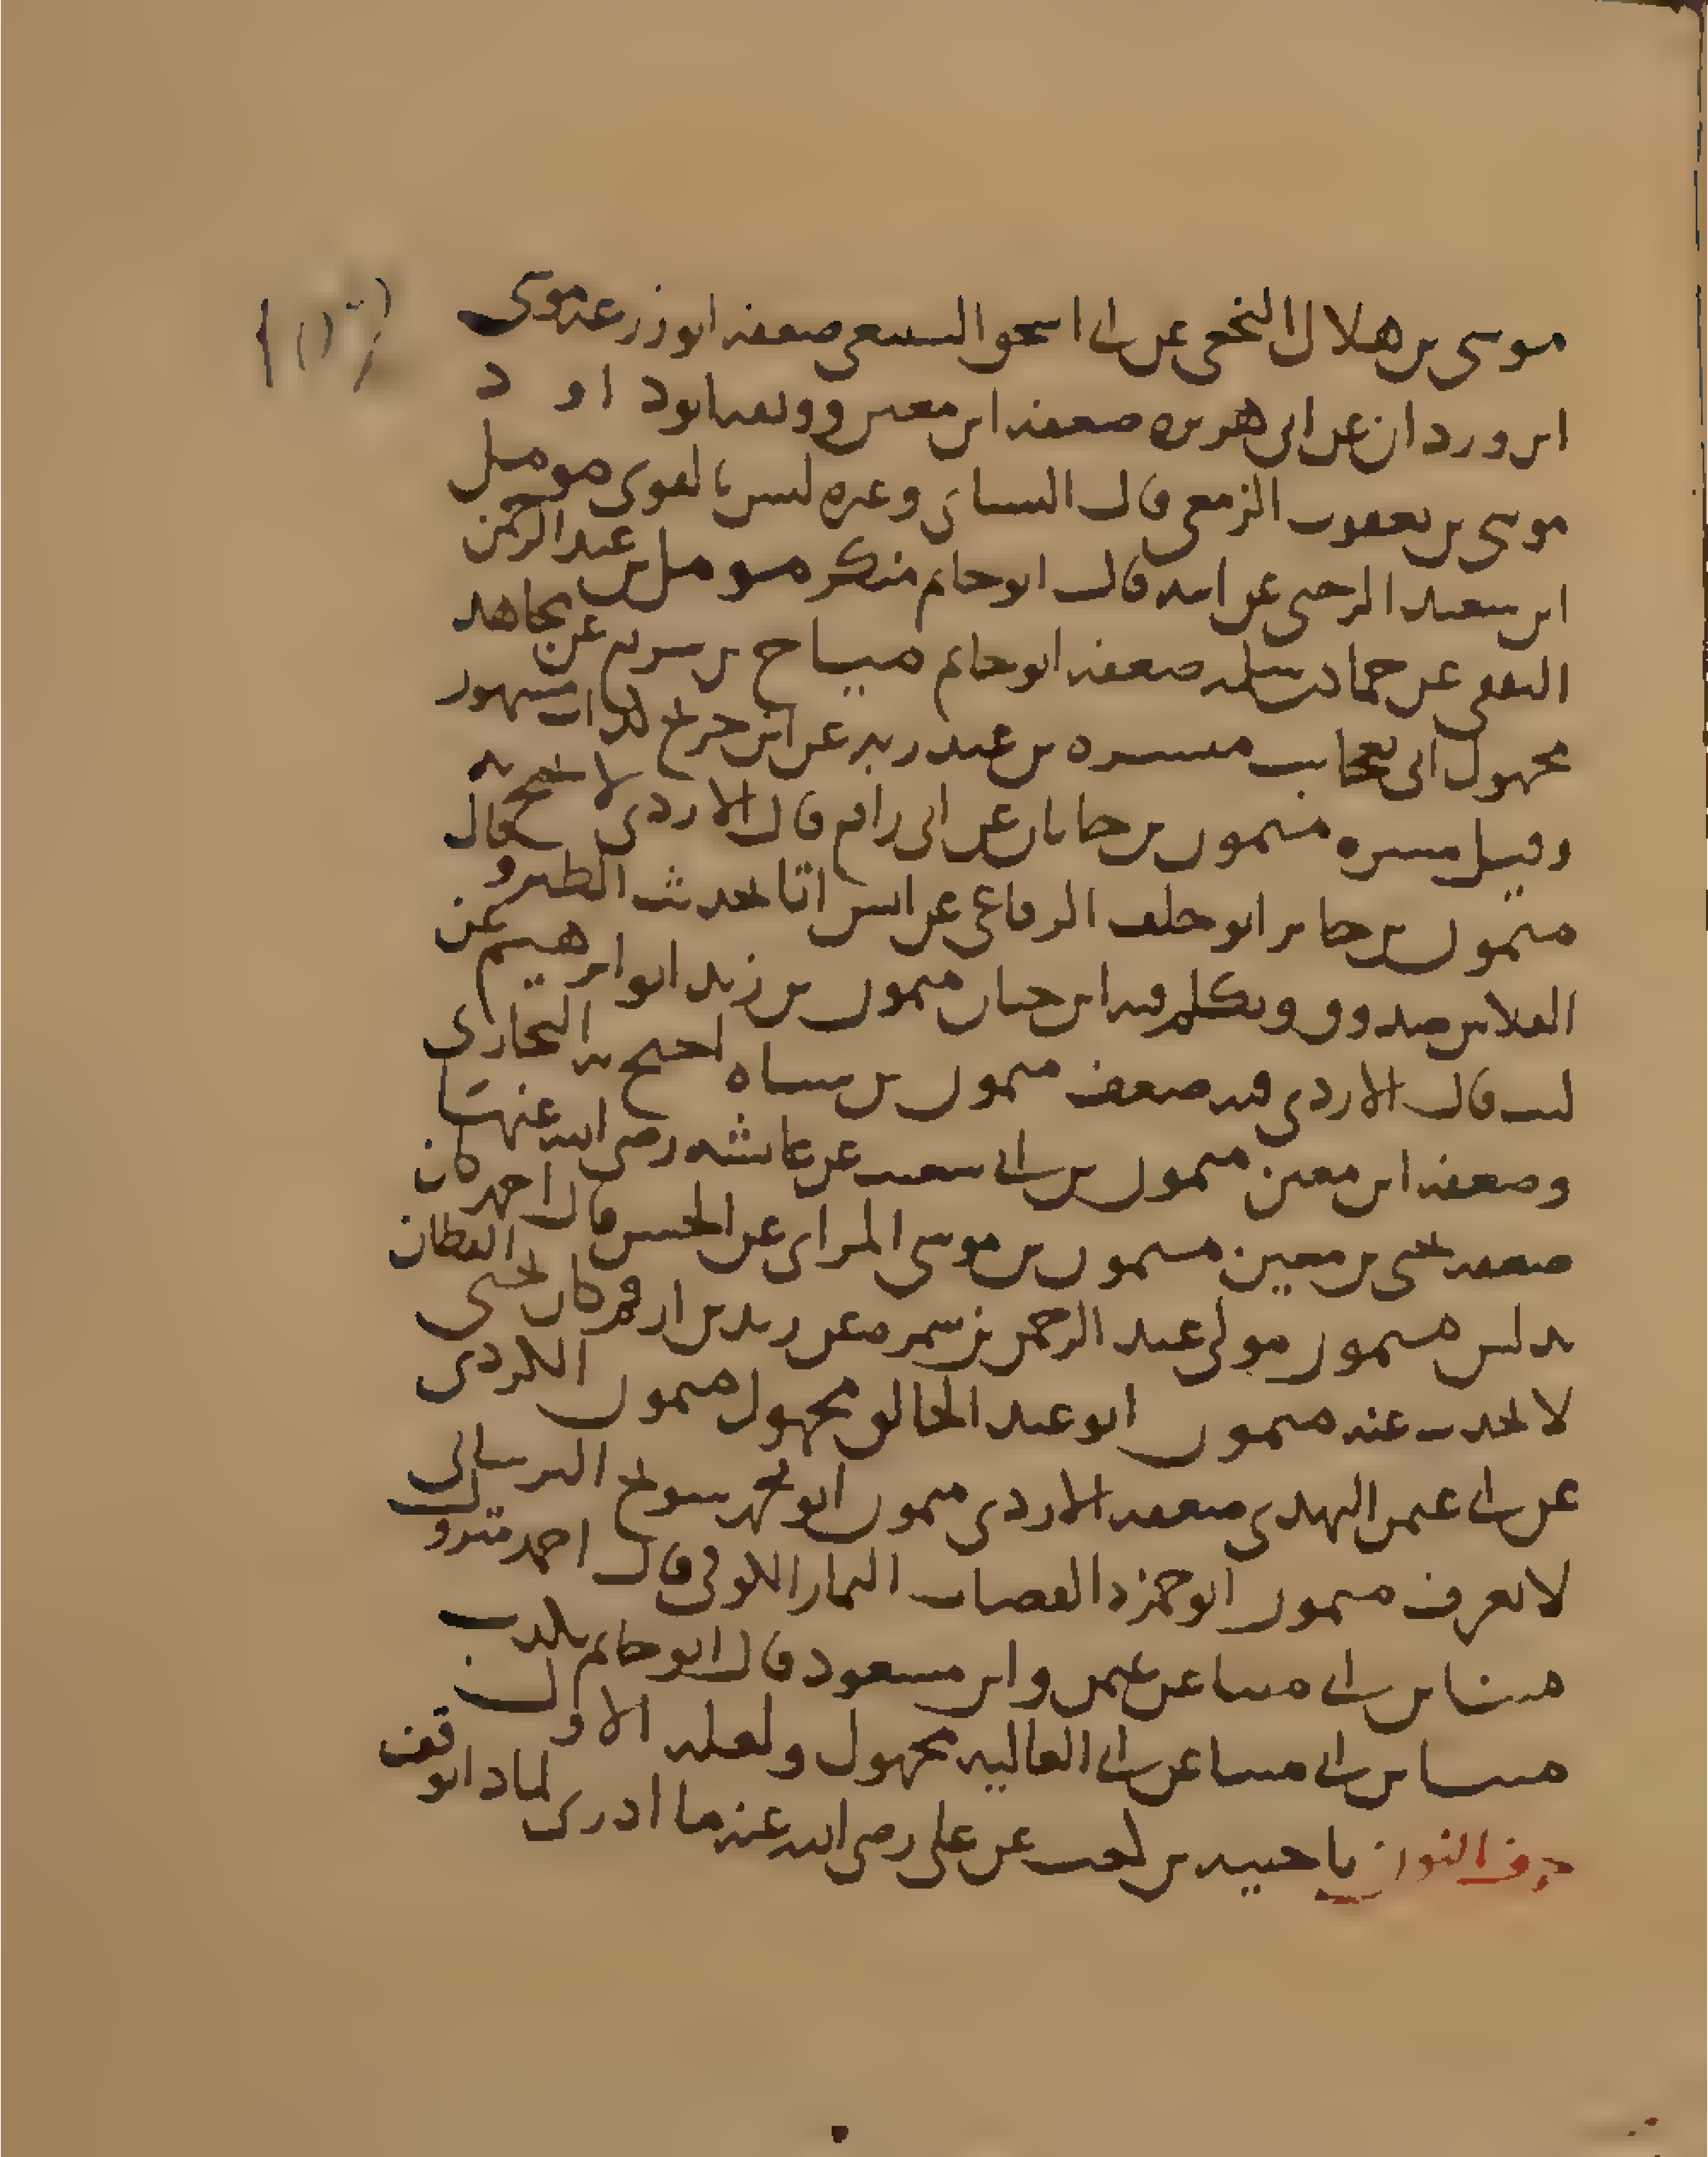 موسى بن هلال النخعي عن أبي اسحق السبيعي ضعفه ابو زرعة موسى
ابن وردان عن ابي هريرة ضعفه ابن معين ووثقه ابو داود
موسى بن يعقوب الزمعي قال النسائي وغيره ليس بالقوي مومل
ابن سعيد الرحبي عن ابيه قال ابو حاتم منكر مومل بن عبد الرحمن
الثقفي عن حماد بن سلمة ضعفه ابو حاتم مياح بن سريع عن مجاهد
مجهول اتى بعجايب ميسرة بن عبد ربه عن ابن جريج كذاب مشهور
وقيل ميسرة ميمون بن جابان عن ابي رافع قال الازدي لا يحتج به
ميمون بن جابر ابو خلف الرفاعي عن انس اتا بحديث الطير و قال
الفلاس صدوق وتكلم فيه ابن حبان ميمون بن زيد ابو ابرهيم عن
ليث قال الازدي فيه ضعف ميمون بن سياه احتج به البخاري
وضعفه ابن معين ميمون بن ابي شعيب عن عائشة رضي الله عنها
ضعفه يحيى بن معين ميمون بن موسى المراي عن الحسن قال احمد كان
يدلس ميمون مولى عبد الرحمن بن سمرة عن زيد بن ارقم كان يحيى القطان
لا يحدث عنه ميمون ابو عبد الخالق مجهول ميمون الكردي
عن ابي عثمن النهدي ضعفه الازدي ميمون ابو محمد شيخ البرساني
لا يعرف ميمون ابو حمزة القصاب التمار الكوفي قال احمد متروك
مينا بن ابي مينا عن عثمن وابن مسعود قال ابو حاتم يكذب
مينا بن ابي مينا عن ابي العالية مجهول ولعله الاول
حرف النون ناجية بن كعب عن علي رضي الله عنه ما ادري لماذا توقف